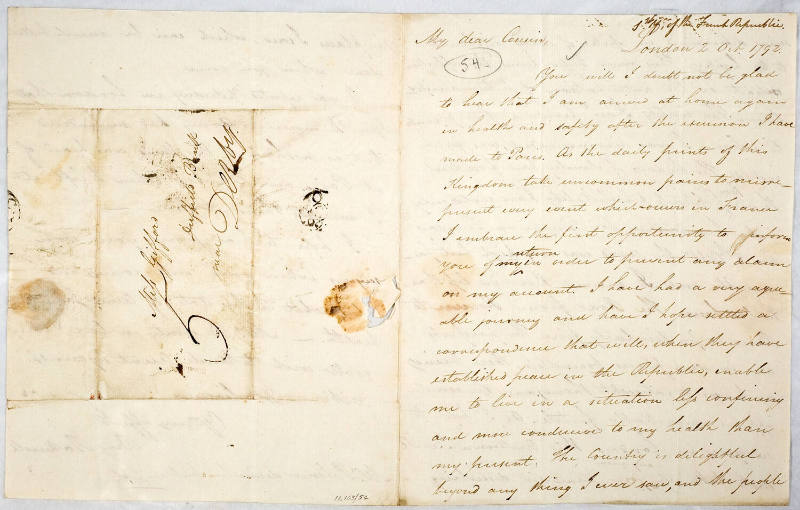 Miss Gifford
Duffield Bank
near Derby
11,103/52
1st Yr. of the French Republic.
London 2 Oct. 1792.
My dear Cousin,
54
You will I doubt not be glad
to hear that I am arrived at home again
in health and safety after the excursion I have
made to Paris. As the daily prints of this
Kingdom take uncommon pains to misre-
present every event which occurs in France
I embrace the first opportunity to inform
you of my return in order to prevent any alarm
on my account. I have had a very agree-
able journey and have I hope settled a
correspondence that will, when they have
established peace in the Republic, enable
me to live in a situation less confining
and more conducive to my health than
my present. The Country is delightful
beyond any thing I ever saw, and the people